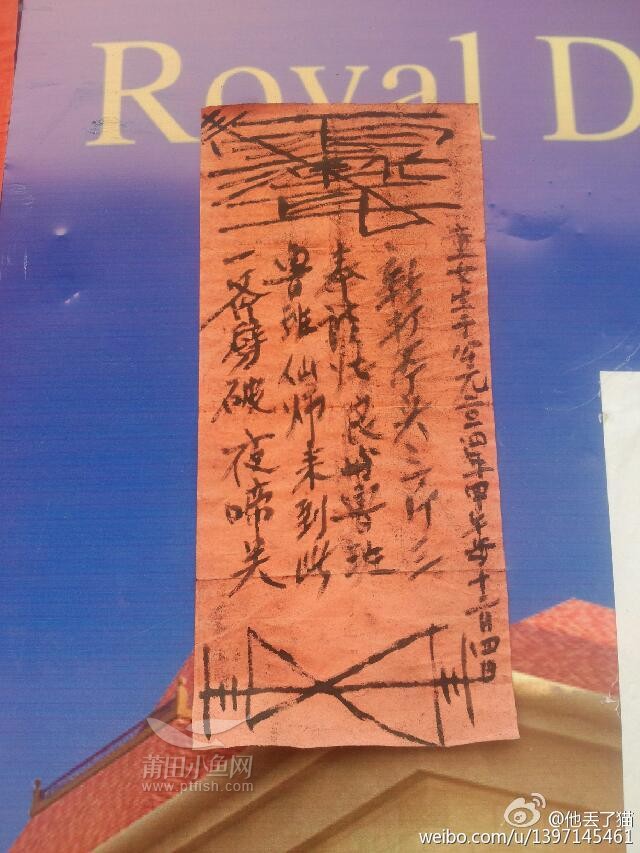 Royal D
女生于公元二〇一四年甲午年十二月
新打斧头三斤三
奉请张良与鲁班
鲁班仙师来到此
一斧劈破夜啼关
莆田小鱼网
www.ptfish.com
@他丢了猫
weibo.com/u/1397145461